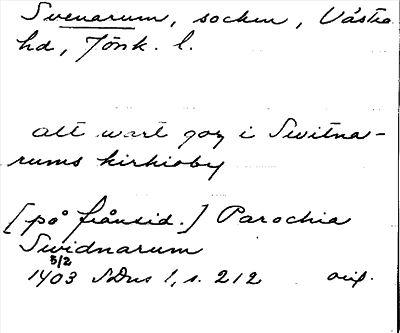 Svenarum, socken, Västra
hd, Jönk. l.
att wart goz i Switna-
rums kirkioby
[på frånsid.] Parochia
Swidnarum
5/2
1403 SDns 1, s. 212 orig.